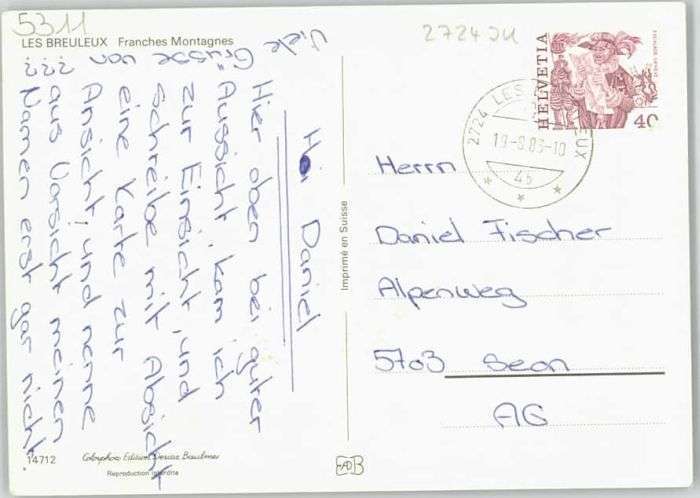 5311
LES BREULEUX   Franches Montagnes
2724 JU
HELVETIA
40
2724 LES BREULEUX
19-8.83-10
45
Hoi Daniel
Hier oben bei guter
Aussicht, kam ich
zur Einsicht, und
schreibe mit Absicht
eine Karte zur
Ansicht, und nenne
aus Vorsicht meinen
Namen erst gar nicht.
Viele Grüsse von ???
Imprimé en Suisse
Herrn
Daniel Fischer
Alpenweg
5703 Seon
AG
14712
Reproduction interdite